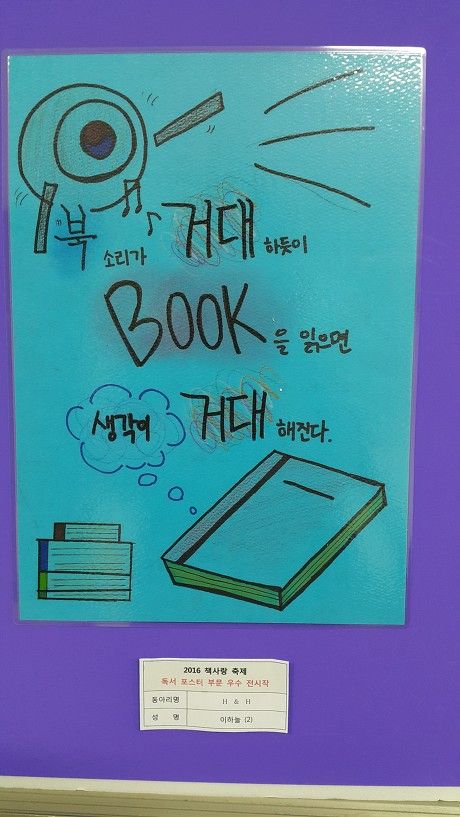 "북 소리가 거대 하듯이
BOOK을 읽으면
생각이 거대 해진다.
2016 책사랑 축제
독서 포스터 부문 우수 전시작
동아리명 H & H
성 명 이하늘 (2)